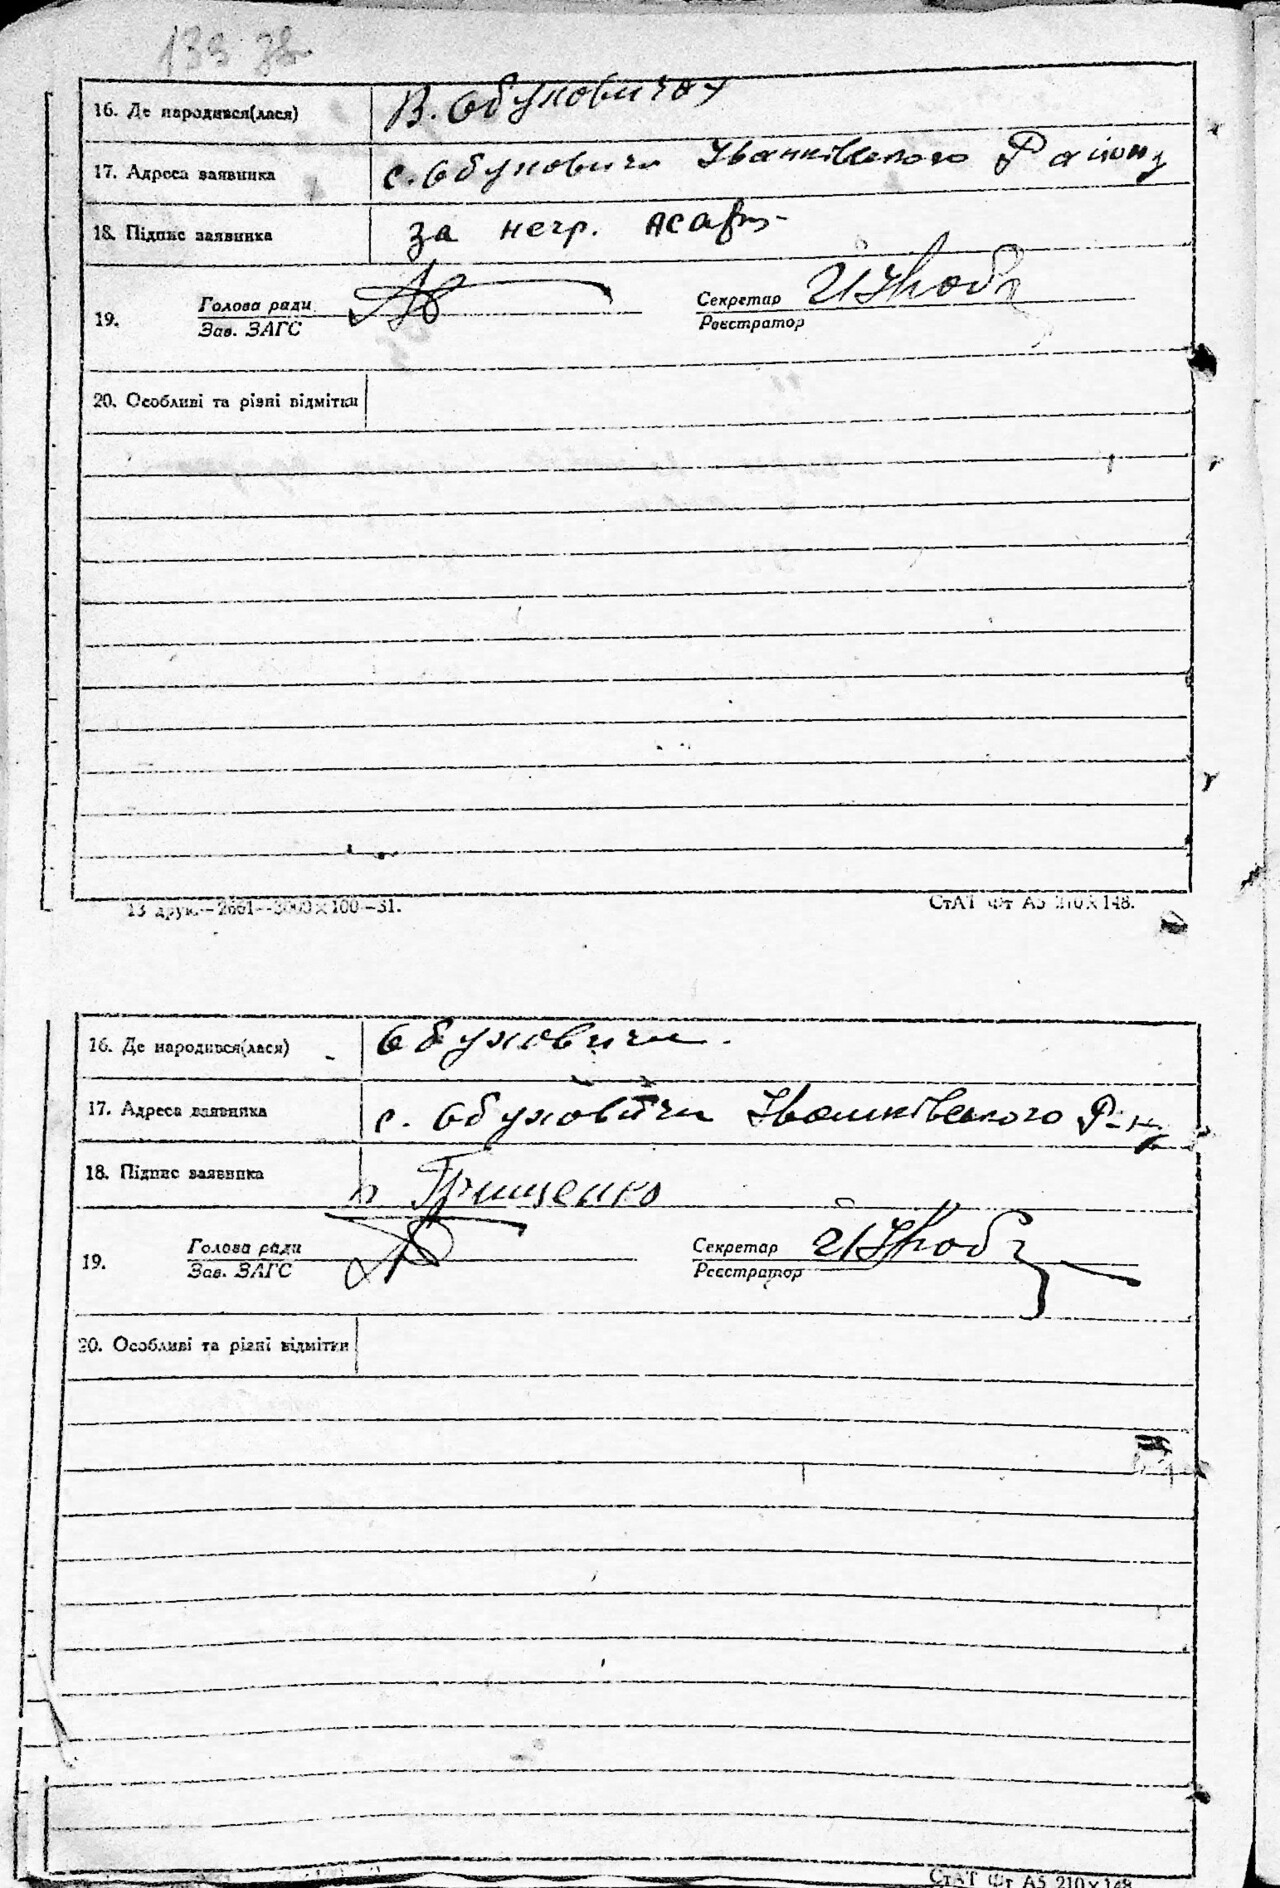 133 зв
16. Де народився(лася) В. Обуховичах
17. Адреса заявника с. Обуховичи Іванківського Району
18. Підпис заявника за негр.
19. Голова ради Секретар
Зав. ЗАГС Реєстратор
20. Особливі та різні відмітки
13 друк.—2661—3000×100—31. СтАТ Фт А5 210×148.
16. Де народився(лася) Обуховичи
17. Адреса заявника с. Обуховичи Іванківського Р-ну
18. Підпис заявника Грищенко
19. Голова ради Секретар
Зав. ЗАГС Реєстратор
20. Особливі та різні відмітки
СтАТ Фт А5 210×148